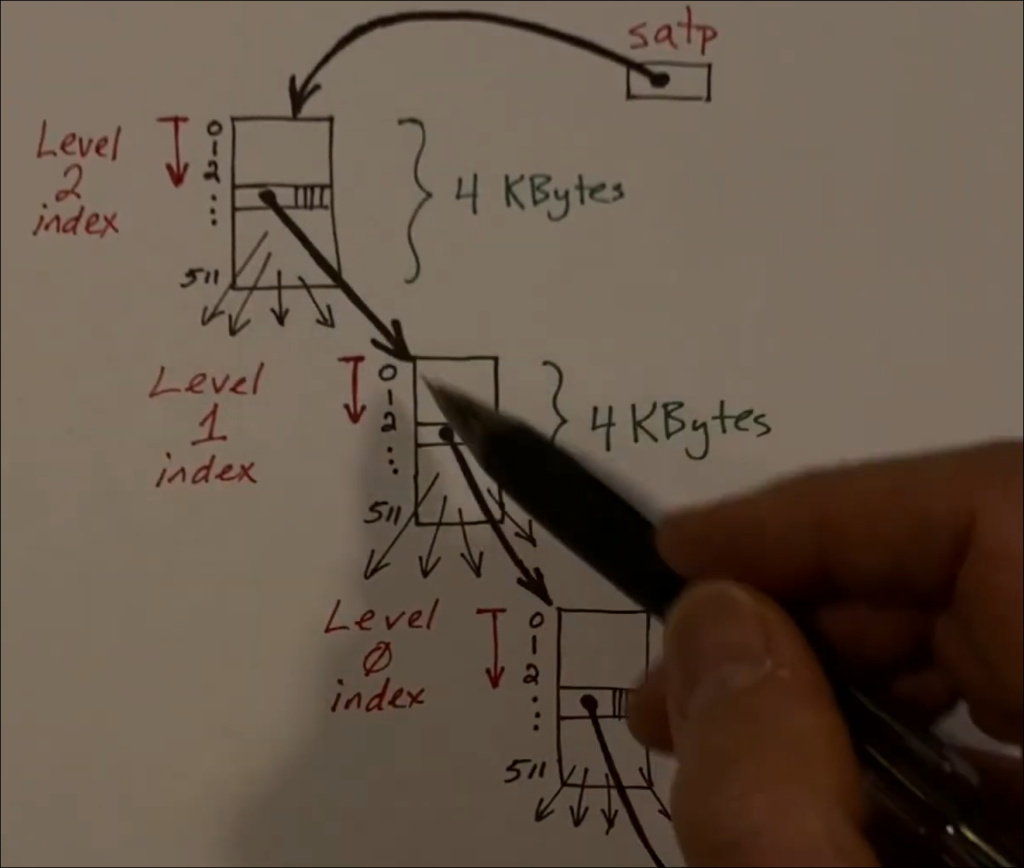 satp
Level
2
index
0
1
2
...
511
4 KBytes
Level
1
index
0
1
2
...
511
4 KBytes
Level
0
index
0
1
2
...
511